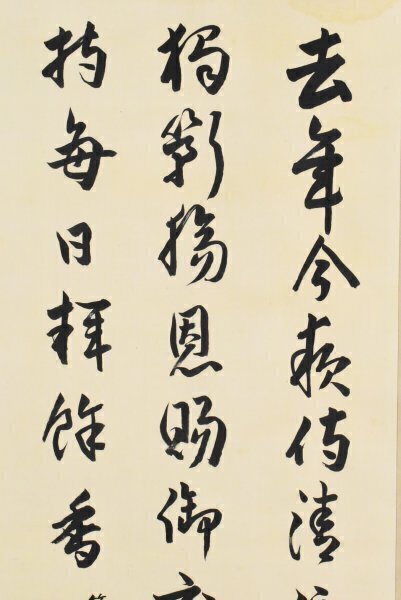 去年今夜侍清
獨斷腸恩賜御
持每日拜餘香